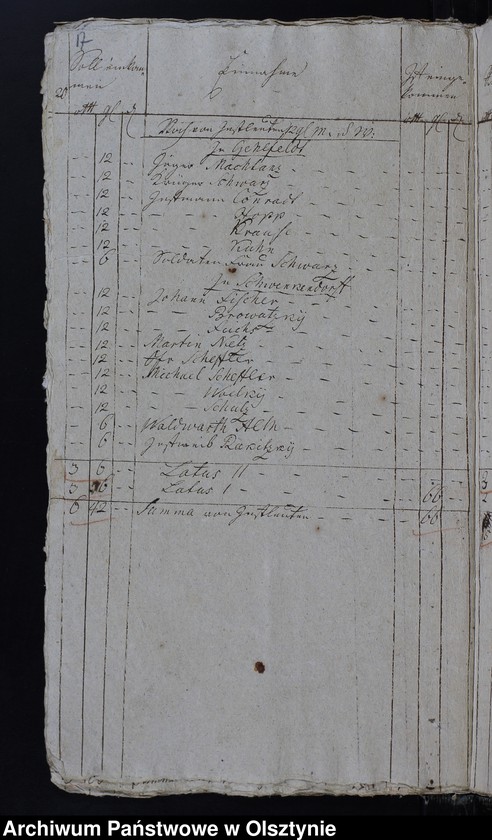 17
Soll einkom-
men
Einnahme
Ist einge-
kommen
20
rtl gl d
rtl gl d
von Instleuten
In Gehlfeldt
12 Jäger Machlanz
12 Krüger Schwarz
12 Instmann Conradt
12 Hopp
12 Krause
12 Kuhn
6 Soldaten Frau Schwarz
In Schwenkendorff
12 Johann Fischer
12 Browatzky
12 Fuchs
12 Martin Neetz
12 Chr Scheffler
12 Michael Scheffler
12 Woelky
12 Schulz
6 Waldwarth Alth
6 Instweib Rakitzky
3 6 Latus II
3 36 Latus I 66
6 42 Summa von Instleuten 66
Archiwum Państwowe w Olsztynie